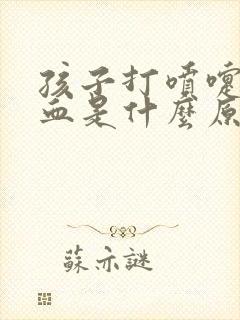 孩子打噴嚏
血是什麼原
蘇亦謎